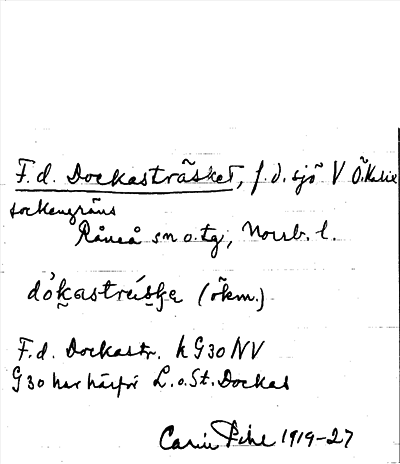 F.d. Dockasträsket, f.d. sjö V Ö.Kalix
sockengräns
Råneå sn o. tg, Norrb. l.
(ökm.)
F.d. Dockastr. k G30 NV
G30 har härför L. o. St. Dockas
Carin Pihl 1919-27